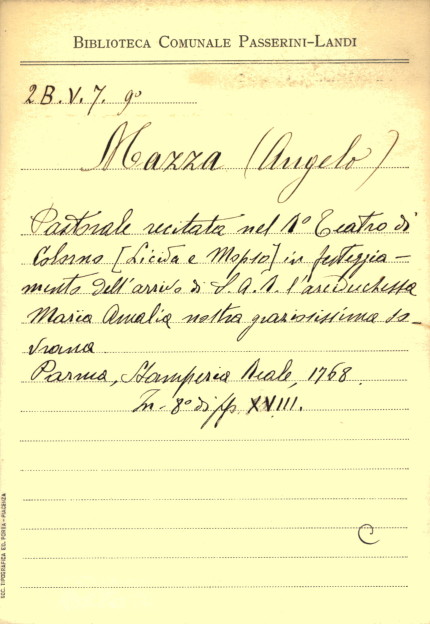 BIBLIOTECA COMUNALE PASSERINI-LANDI
2 B. V. 7. 9º
Mazza (Angelo)
Pastorale recitata nel R.º Teatro di
Colorno [Licida e Mopso] in festeggia-
mento dell'arrivo di S. A. R. l'arciduchessa
Maria Amalia nostra graziosissima so-
vrana.
Parma, Stamperia Reale, 1768.
In-8º di pp. XVIII.
C
SOC. TIPOGRAFICA ED. PORTA-PIACENZA